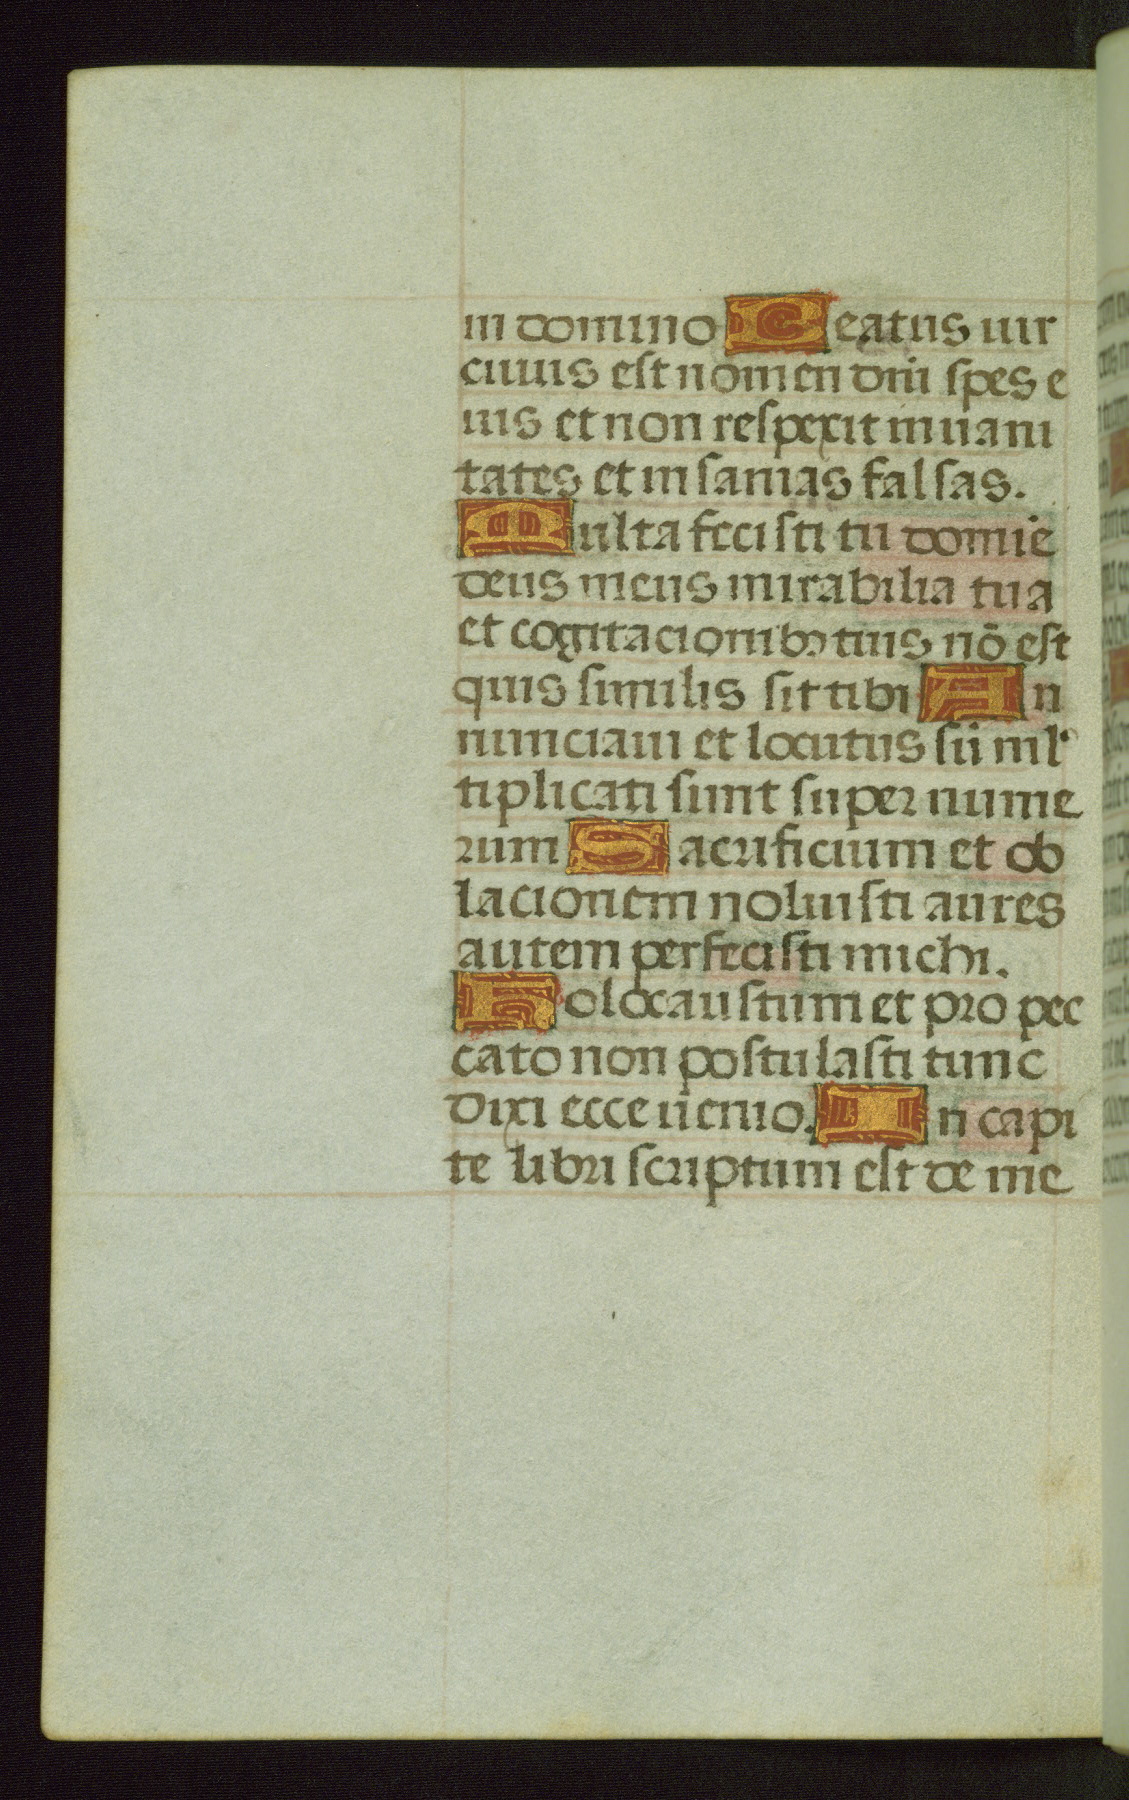 in domino Beatus uir
cuius est nomen dñi spes e
ius et non respexit in uani
tates et insanias falsas.
Multa fecisti tu domiē
deus meus mirabilia tua
et cogitacionibꝫ tuis nō est
quis similis sit tibi An
nunciaui et locutus sū ml᷒
tiplicati sunt super nume
rum Sacrificium et ob
lacionem noluisti aures
autem perfecisti michi.
Holocaustum et pro pec
cato non postulasti tunc
dixi ecce uenio. In capi
te libri scriptum est de me